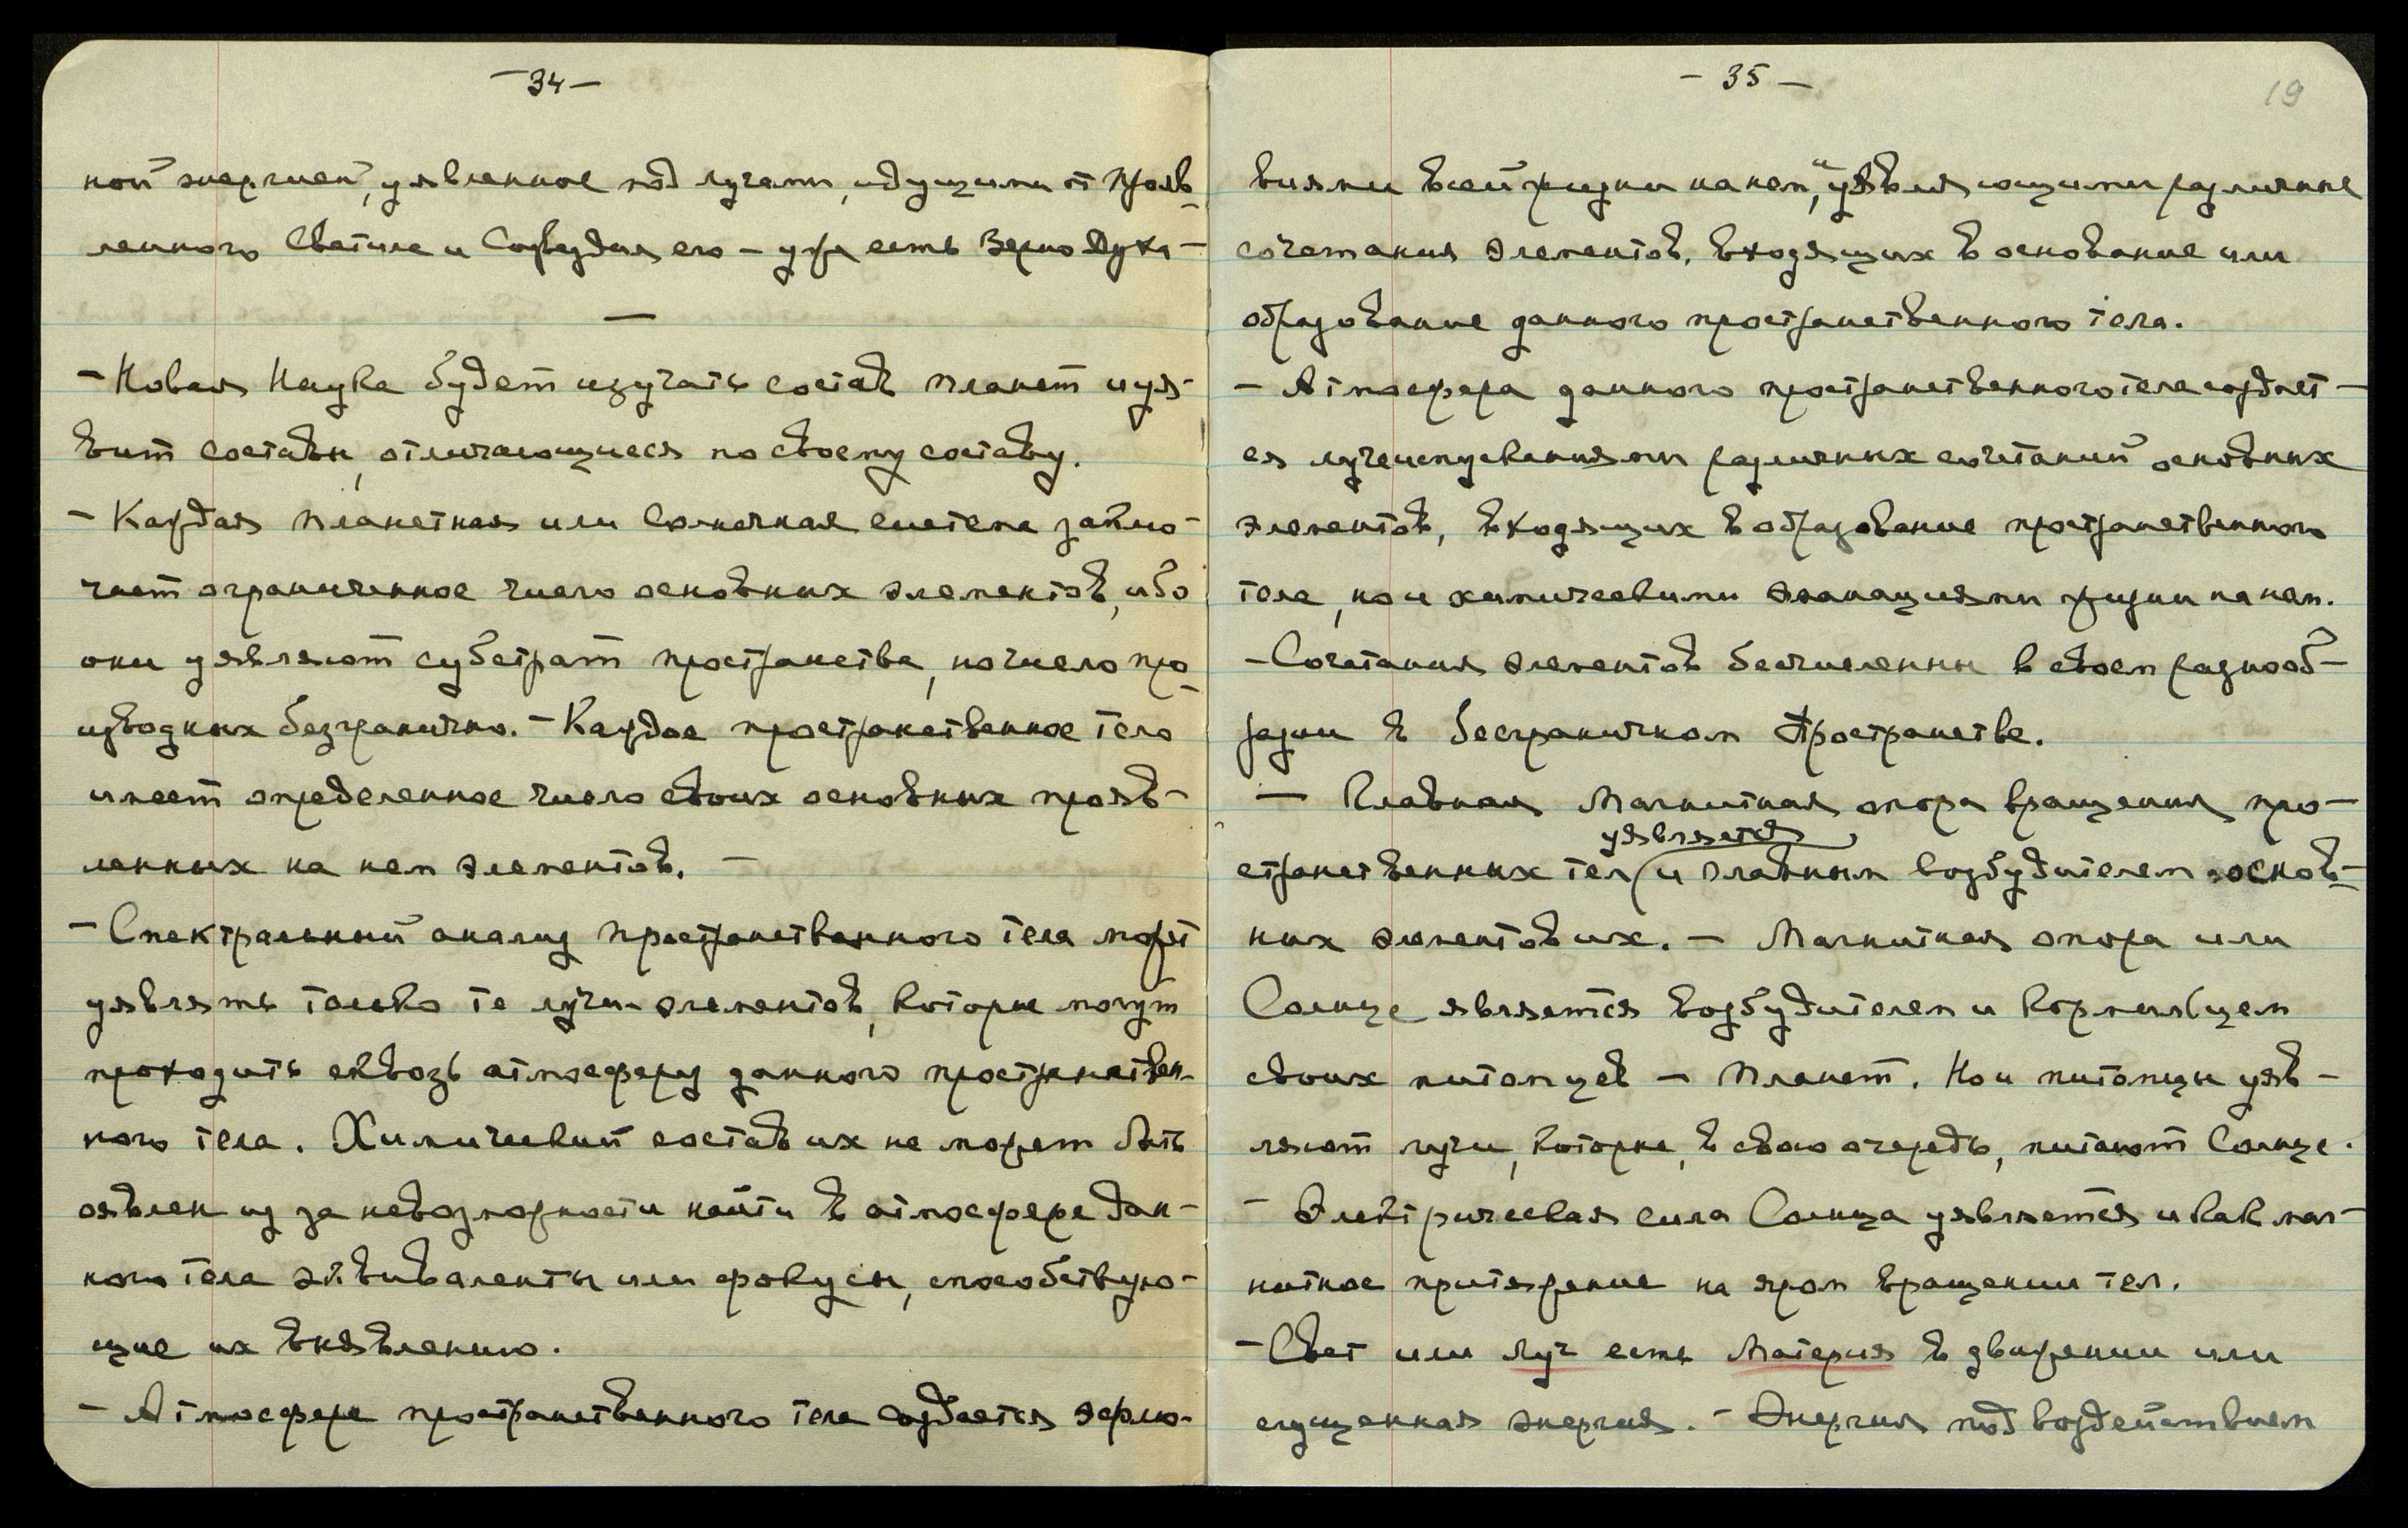 – 34 –
ной энергией, уявленное под лучами, идущими от Прояв-
ленного Светила и Созвездия его – уже есть Зерно Духа –
—
– Новая Наука будет изучать состав планет и уя-
вит составы, отличающиеся по своему составу.
– Каждая планетная или Солнечная система заклю-
чает ограниченное число основных элементов, ибо
они уявляют субстрат пространства, но число про-
изводных безгранично. – Каждое пространственное тело
имеет определенное число своих основных прояв-
ленных на нем элементов. –
– Спектральный анализ пространственного тела может
уявлять только те лучи элементов, которые могут
проходить сквозь атмосферу данного пространствен-
ного тела. Химический состав их не может быть
оявлен из за невозможности найти в атмосфере дан-
ного тела эквиваленты или фокусы, способствую-
щие их выявлению.
– Атмосфера пространственного тела создается
– 35 –
19
виями всей жизни на нем, уявляющими различные
сочетания элементов, входящих в основание или
образование данного пространственного тела.
– Атмосфера данного пространственного тела создает-
ся лучеиспусканиями различных сочетаний основных
элементов, входящих в образование пространственного
тела, но и химическими эманациями жизни на нем.
– Сочетания элементов бесчисленны в своем разнооб-
разии в безграничном Пространстве.
– Главная Магнитная опора вращения про-
уявляется
странственных тел и главным возбудителем основ-
ных элементов их. – Магнитная опора или
Солнце является возбудителем и кормильцем
своих питомцев – Планет. Но и питомцы уяв-
ляют лучи, которые, в свою очередь, питают Солнце.
– Электрическая сила Солнца уявляется и как маг-
нитное притяжение на яром вращении тел.
– Свет или Луч есть Материя в движении или
сгущенная энергия. – Энергия под воздействием